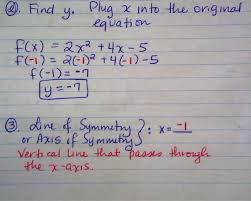 ②. Find y. Plug x into the original
equation
f(x) = 2x² + 4x - 5
f(-1) = 2(-1)² + 4(-1) - 5
f(-1) = -7
y = -7
③. Line of Symmetry } : x = -1
or Axis of Symmetry
Vertical line that passes through
the x-axis.